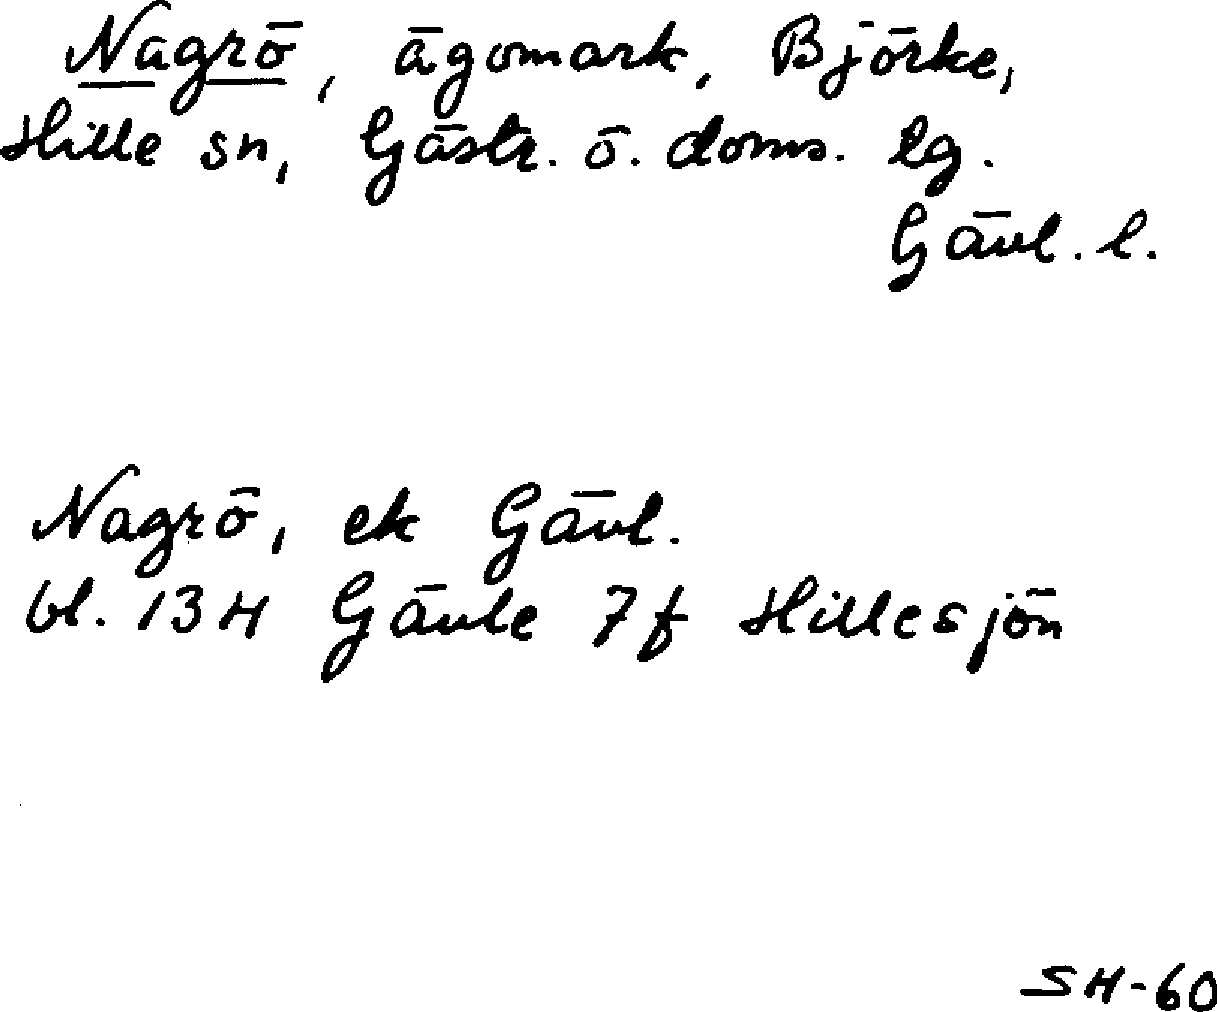 Nagrö, ägomark, Björke,
Hille sn, Gästr. ö. doms. lg.
Gävl. l.
Nagrö, ek Gävl.
bl. 13H Gävle 7f Hillesjön
SH-60